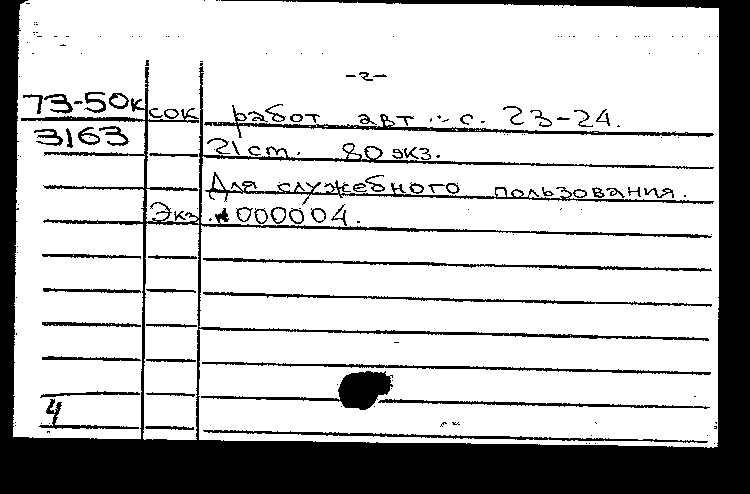 -2-
73-50к сок работ авт.: с. 23-24.
3163 21 ст. 80 экз.
Для служебного пользования.
Экз. №000004.
4